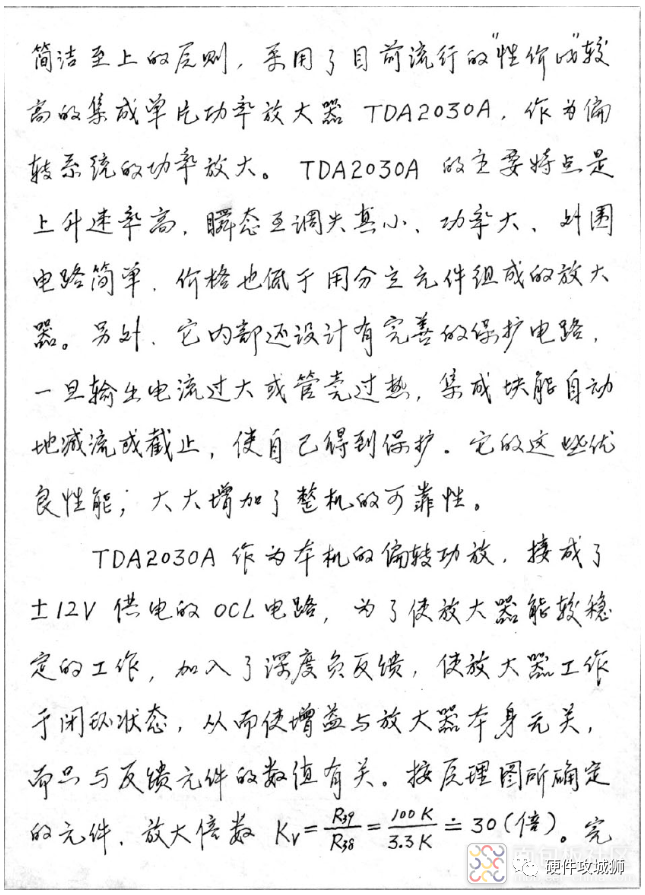 简洁至上的原则，采用了目前流行的"性价比"较
高的集成单片功率放大器 TDA2030A，作为偏
转系统的功率放大。TDA2030A 的主要特点是
上升速率高，瞬态互调失真小、功率大、外围
电路简单，价格也低于用分立元件组成的放大
器。另外，它内部还设计有完善的保护电路，
一旦输出电流过大或管壳过热，集成块能自动
地减流或截止，使自己得到保护。它的这些优
良性能；大大增加了整机的可靠性。
TDA2030A 作为本机的偏转功放，接成了
±12V 供电的 OCL 电路，为了使放大器能较稳
定的工作，加入了深度负反馈，使放大器工作
于闭环状态，从而使增益与放大器本身无关，
而只与反馈元件的数值有关。按原理图所确定
的元件，放大倍数 Kv = R39/R38 = 100K/3.3K ≐ 30(倍)。完
硬件攻城狮